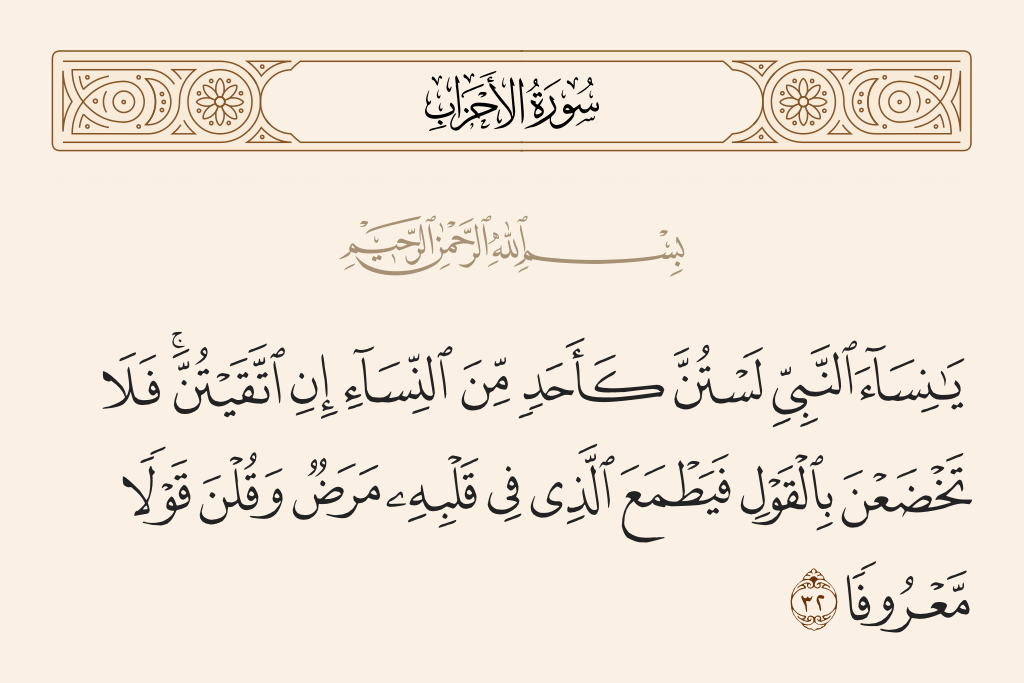 سُورَةُ الأَحْزَابِ
بِسْمِ ٱللَّهِ ٱلرَّحْمَٰنِ ٱلرَّحِيمِ
يَـٰنِسَآءَ ٱلنَّبِىِّ لَسْتُنَّ كَأَحَدٍ مِّنَ ٱلنِّسَآءِ إِنِ ٱتَّقَيْتُنَّ ۚ فَلَا
تَخْضَعْنَ بِٱلْقَوْلِ فَيَطْمَعَ ٱلَّذِى فِى قَلْبِهِۦ مَرَضٌ وَقُلْنَ قَوْلًا
مَّعْرُوفًا ٣٢